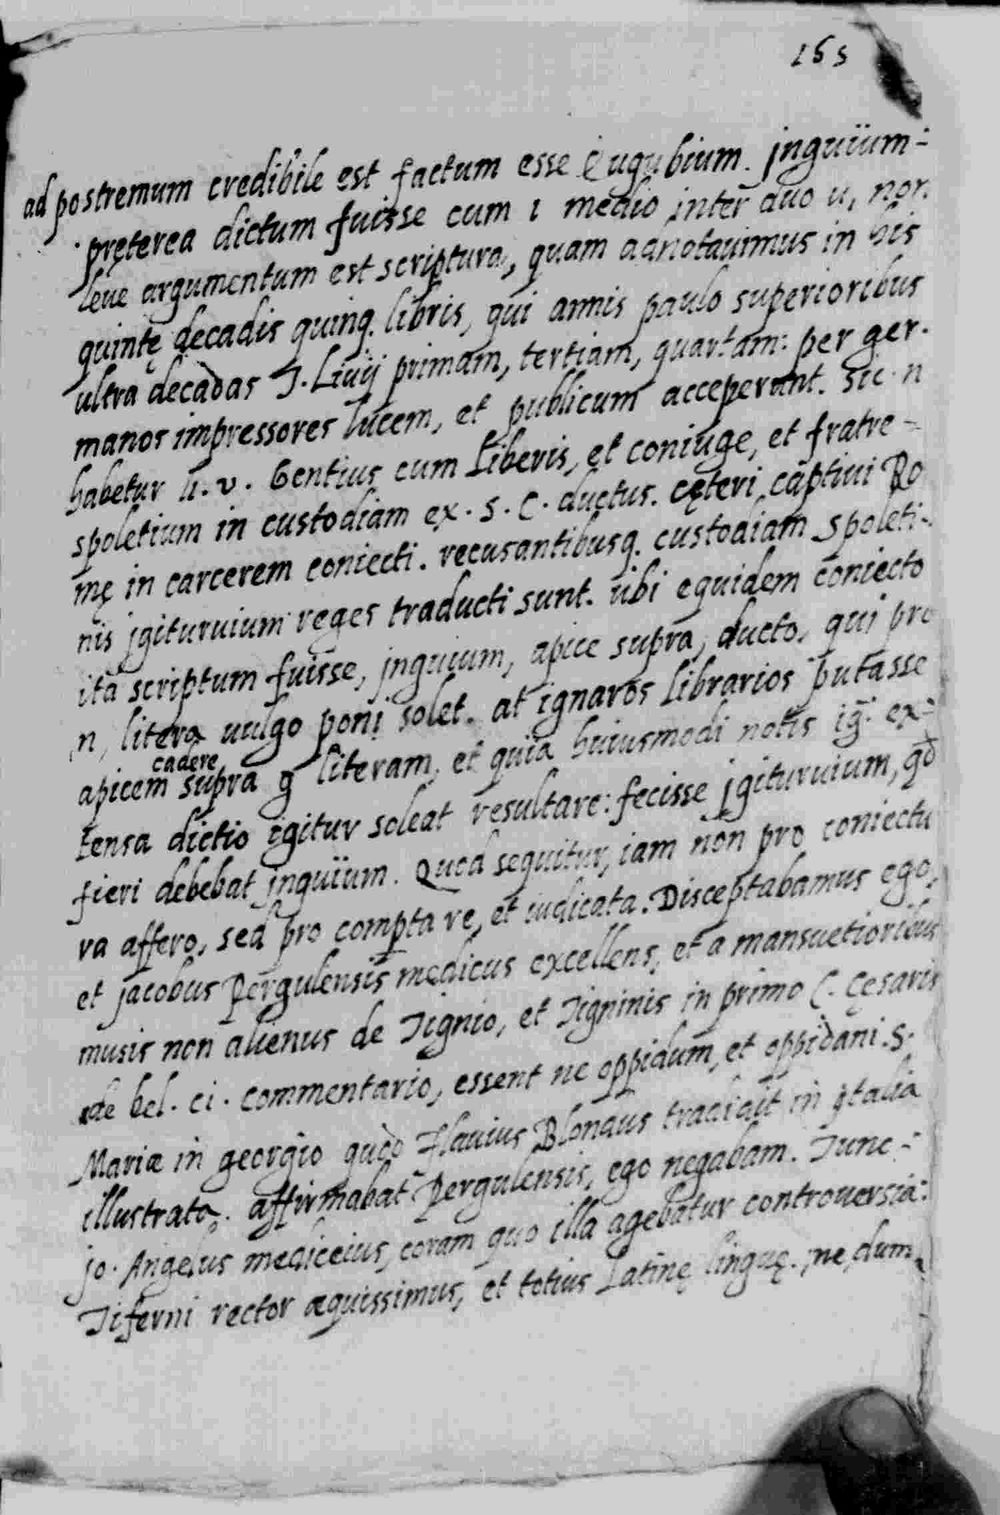 165
ad postremum credibile est factum esse Eugubium. jnguium
pręterea dictum fuisse cum i medio inter duo u, non
leue argumentum est scriptura, quam adnotauimus in his
quintę decadis quinq. libris, qui annis paulo superioribus
ultra decadas T. Liuij primam, tertiam, quartam: per ger-
manos impressores lucem, et publicum acceperunt. sic n
habetur li. v. Gentius cum liberis, et coniuge, et fratre
spoletium in custodiam ex. S. C. ductus. cęteri captiui Ro
mę in carcerem coniecti. recusantibusq. custodiam spoleti-
nis jgituruium reges traducti sunt. ubi equidem coniecto
ita scriptum fuisse, jnguium, apice supra, ducto, qui pro
n, litera uulgo poni solet. at ignaros librarios putasse
cadere
apicem supra g literam, et quia huiusmodi notis ig̃. ex-
tensa dictio igitur soleat resultare: fecisse jgituruium, qd̃
fieri debebat jnguium. Quod sequitur, iam non pro coniectu
ra affero, sed pro comperta re, et iudicata. Disceptabamus ego,
et jacobus Pergulensis medicus excellens, et a mansuetioribus
musis non alienus de Tignio, et Tigninis in primo C. Cęsaris
de bel. ci. commentario, essent ne oppidum, et oppidani. S.
Mariæ in georgio quod Flauius Blondus tradidit in jtalia
illustrata. affirmabat Pergulensis, ego negabam. Tunc
jo. Angelus mediceius, coram quo illa agebatur controuersia:
Tiferni rector æquissimus, et totius Latinę linguę, ne dum